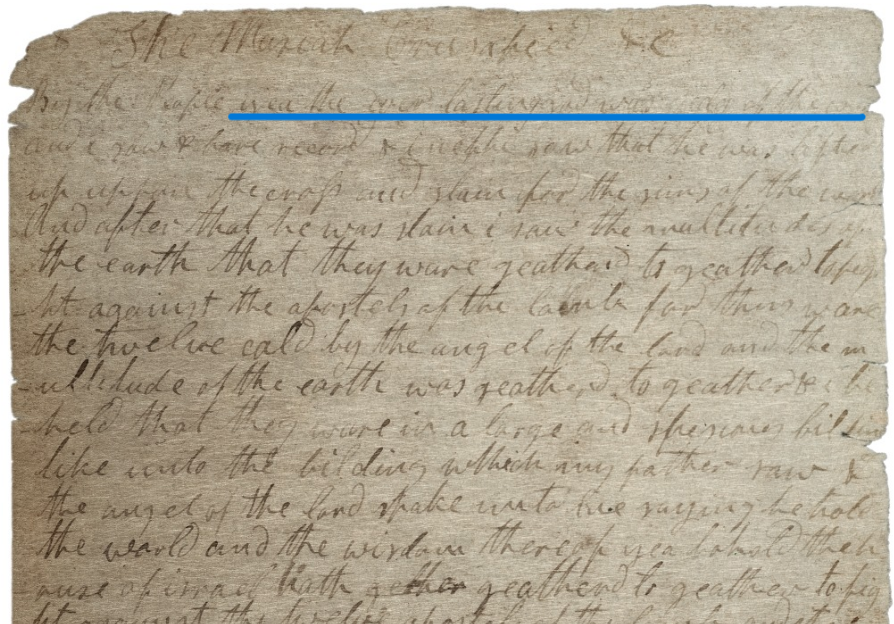 The
By the People yea the ever lasting god was of the
and i saw & bare record & i nephi saw that he was lifted
up uppon the cross and slain for the sins of the world
And after that he was slain i saw the multitudes of
the earth that they ware geatherd to geather to fig
ht against the apostels of the lamb for thus ware
the twelve cald by the angel of the lord and the m
ultitude of the earth was geatherd to geather & i be
held that they ware in a large and spacious bildin
like unto the bilding which my father saw &
the angel of the lord spake unto me saying behold
the world and the wisdom thereof yea behold the h
ouse of israel hath geatherd to geather to fig
ht against the twelve apostels of the lamb